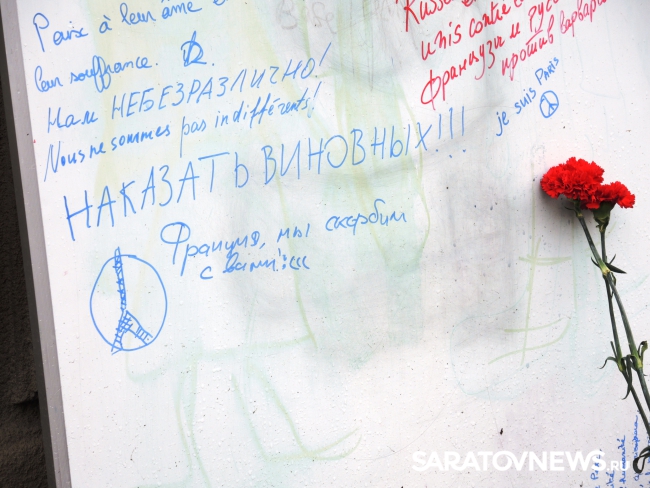 Paix à leur âme et
leur souffrance.
Нам НЕБЕЗРАЗЛИЧНО!
Nous ne sommes pas indifférents!
НАКАЗАТЬ ВИНОВНЫХ!!!
Франция, мы скорбим
с вами!
unis contre
Французы и Рус
против варвар
je suis PARIS
SARATOVNEWS.RU